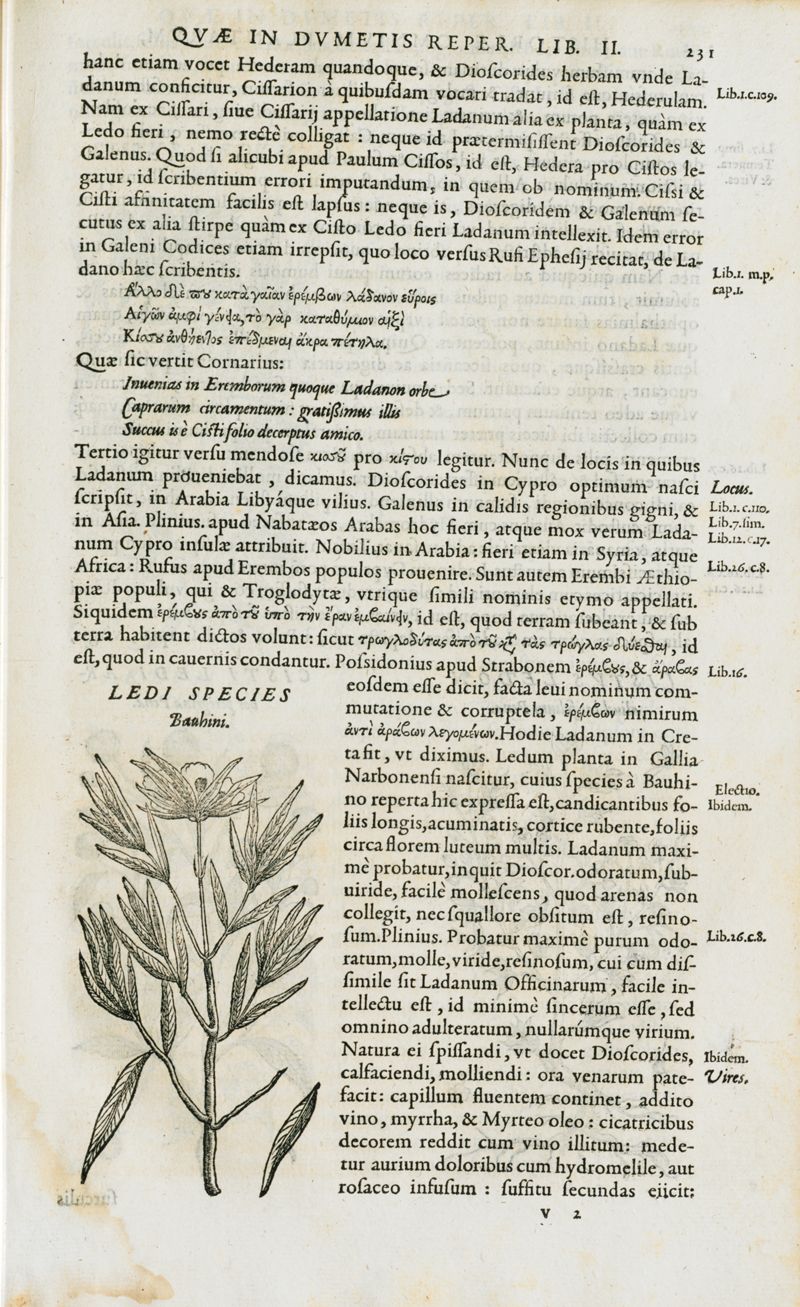 QVÆ IN DVMETIS REPER. LIB. II. 231
hanc etiam vocet Hederam quandoque, & Dioſcorides herbam vnde La-
danum conficitur, Ciſſarion à quibuſdam vocari tradat, id eſt, Hederulam. Lib.1.c.109.
Nam ex Ciſſari, ſiue Ciſſarij appellatione Ladanum alia ex planta, quàm ex
Ledo fieri, nemo rectè colligat: neque id prætermiſiſſent Dioſcorides &
Galenus. Quod ſi alicubi apud Paulum Ciſſos, id eſt, Hedera pro Ciſtos le-
gatur, id ſcribentium errori imputandum, in quem ob nominum Ciſsi &
Ciſti affinitatem facilis eſt lapſus: neque is, Dioſcoridem & Galenum ſe-
cutus ex alia ſtirpe quàm ex Ciſto Ledo fieri Ladanum intellexit. Idem error
in Galeni Codices etiam irrepſit, quo loco verſus Rufi Epheſij recitat, de La-
dano hæc ſcribentis. Lib.1. m.p.
cap.1.
Ἄλλο δὲ που κατὰ γαῖαν ἐρέμβων λάδανον εὕροις
Αἰγῶν ἀμφὶ γένυα, τὸ γὰρ καταθύμιον αἰξὶ
Κισσοῦ ἀνθήεντος ἐπέδμεναι ἄκρα πέτηλα.
Quæ ſic vertit Cornarius:
Inuenias in Eremborum quoque Ladanon orbe
Caprarum circamentum: gratiſsimus illis
Succus is è Ciſti folio decerptus amico.
Tertio igitur verſu mendoſe κισσοῦ pro κίστου legitur. Nunc de locis in quibus
Ladanum proueniebat, dicamus. Dioſcorides in Cypro optimum naſci Locus.
ſcripſit, in Arabia Libyáque vilius. Galenus in calidis regionibus gigni, & Lib.1.c.110.
in Aſia. Plinius. apud Nabatæos Arabas hoc fieri, atque mox verum Lada- Lib.7.ſim.
Lib.12.c.17.
num Cypro inſulæ attribuit. Nobilius in Arabia: fieri etiam in Syria, atque
Africa: Rufus apud Erembos populos prouenire. Sunt autem Erembi Æthio- Lib.26.c.8.
piæ populi, qui & Troglodytæ, vtrique ſimili nominis etymo appellati.
Siquidem ἐρέμβους ἀπὸ τοῦ ὑπὸ τὴν ἔραν ἐμβαίνειν, id eſt, quod terram ſubeant, & ſub
terra habitent dictos volunt: ſicut τρωγλοδύτας ἀπὸ τοῦ τὰς τρώγλας δύεσθαι, id
eſt, quod in cauernis condantur. Poſsidonius apud Strabonem ἐρέμβους, & ἄραβας Lib.16.
eoſdem eſſe dicit, facta leui nominum com-
mutatione & corruptela, ἐρέμβων nimirum
ἀντὶ ἀράβων λεγομένων. Hodie Ladanum in Cre-
ta fit, vt diximus. Ledum planta in Gallia
Narbonenſi naſcitur, cuius ſpecies à Bauhi- Electio.
no reperta hic expreſſa eſt, candicantibus fo- Ibidem.
liis longis, acuminatis, cortice rubente, foliis
circa florem luteum multis. Ladanum maxi-
mè probatur, inquit Dioſcor. odoratum, ſub-
uiride, facilè molleſcens, quod arenas non
collegit, nec ſquallore obſitum eſt, reſino-
ſum. Plinius. Probatur maximè purum odo- Lib.26.c.8.
ratum, molle, viride, reſinoſum, cui cum diſ-
ſimile ſit Ladanum Officinarum, facile in-
tellectu eſt, id minimè ſincerum eſſe, ſed
omnino adulteratum, nullarúmque virium.
Natura ei ſpiſſandi, vt docet Dioſcorides, Ibidem.
calfaciendi, molliendi: ora venarum pate- Vires.
facit: capillum fluentem continet, addito
vino, myrrha, & Myrteo oleo: cicatricibus
decorem reddit cum vino illitum: mede-
tur aurium doloribus cum hydromelile, aut
roſaceo infuſum: ſuffitu ſecundas eiicit:
LEDI SPECIES
Bauhini.
V 2